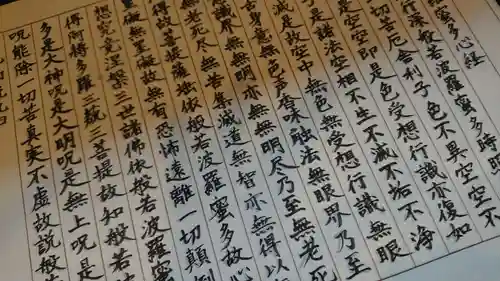 蜜多心経
行深般若波羅蜜多時照
一切苦厄舎利子色不異空空不
空空即是色受想行識亦復如
是諸法空相不生不滅不垢不浄
減是故空中無色無受想行識無眼
舌身意無色声香味触法無眼界乃至
意識界無無明亦無無明尽乃至無老死
無老死尽無苦集滅道無智亦無得以
得故菩提薩埵依般若波羅蜜多故心
罣礙無罣礙故無有恐怖遠離一切顛倒
想究竟涅槃三世諸佛依般若波羅蜜
得阿耨多羅三藐三菩提故知般若
多是大神呪是大明呪是無上呪是
呪能除一切苦真実不虚故説般若